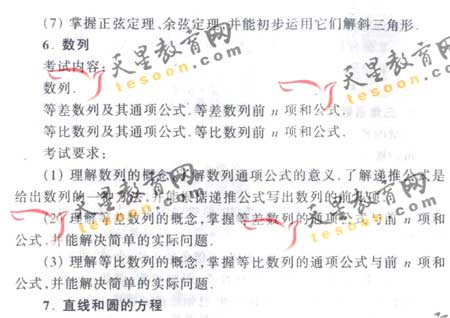 (7) 掌握正弦定理、余弦定理,并能初步运用它们解斜三角形.
6. 数列
考试内容:
数列.
等差数列及其通项公式.等差数列前 n 项和公式.
等比数列及其通项公式.等比数列前 n 项和公式.
考试要求:
(1) 理解数列的概念,了解数列通项公式的意义.了解递推公式是
给出数列的一种方法,并能根据递推公式写出数列的前几项.
(2) 理解等差数列的概念,掌握等差数列的通项公式与前 n 项和
公式,并能解决简单的实际问题.
(3) 理解等比数列的概念,掌握等比数列的通项公式与前 n 项和
公式,并能解决简单的实际问题.
7. 直线和圆的方程
天星教育网
tesoon.com
天星教育网
tesoon.com
天星教育网
tesoon.com
天星教育网
tesoon.com